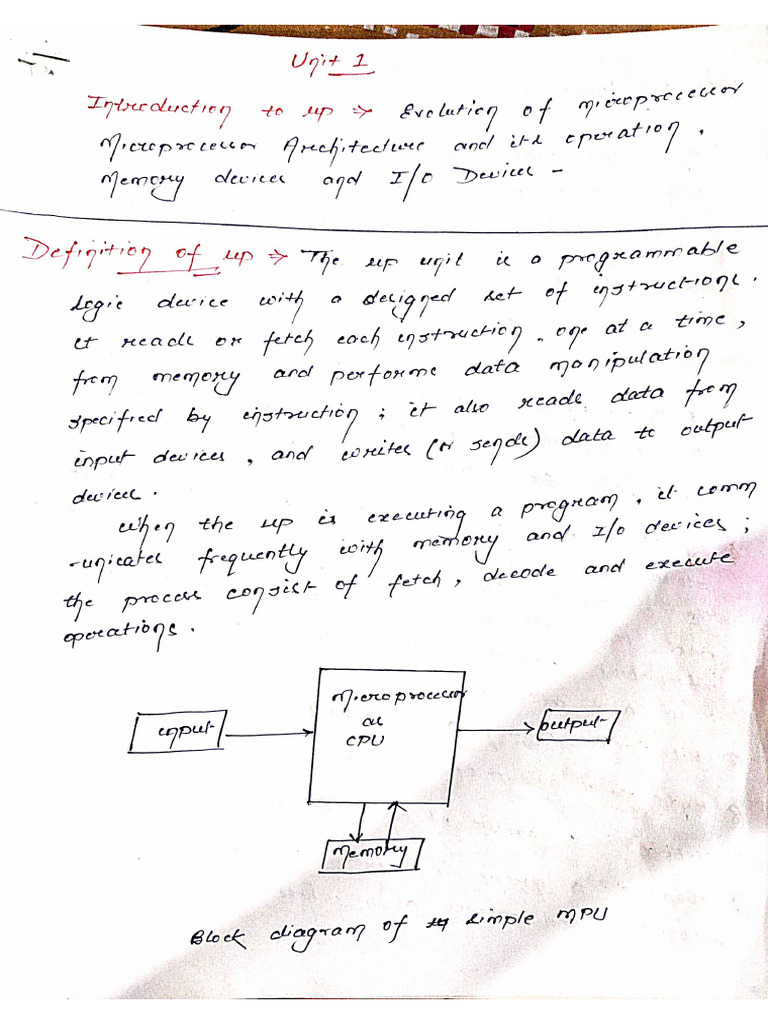 Unit 1
Introduction to up ⇒ Evolution of microprocessor
Microprocessor Architecture and its operation,
Memory devices and I/O Devices -
Definition of up ⇒ The up unit is a programmable
logic device with a designed set of instructions.
it reads or fetch each instruction, one at a time,
from memory and performs data manipulation
specified by instruction; it also reads data from
input devices, and writes (or sends) data to output
devices.
When the up is executing a program, it comm
-unicates frequently with memory and I/O devices;
the process consist of fetch, decode and execute
operations.
input
Microprocessor
as
CPU
output
Memory
Block diagram of simple MPU